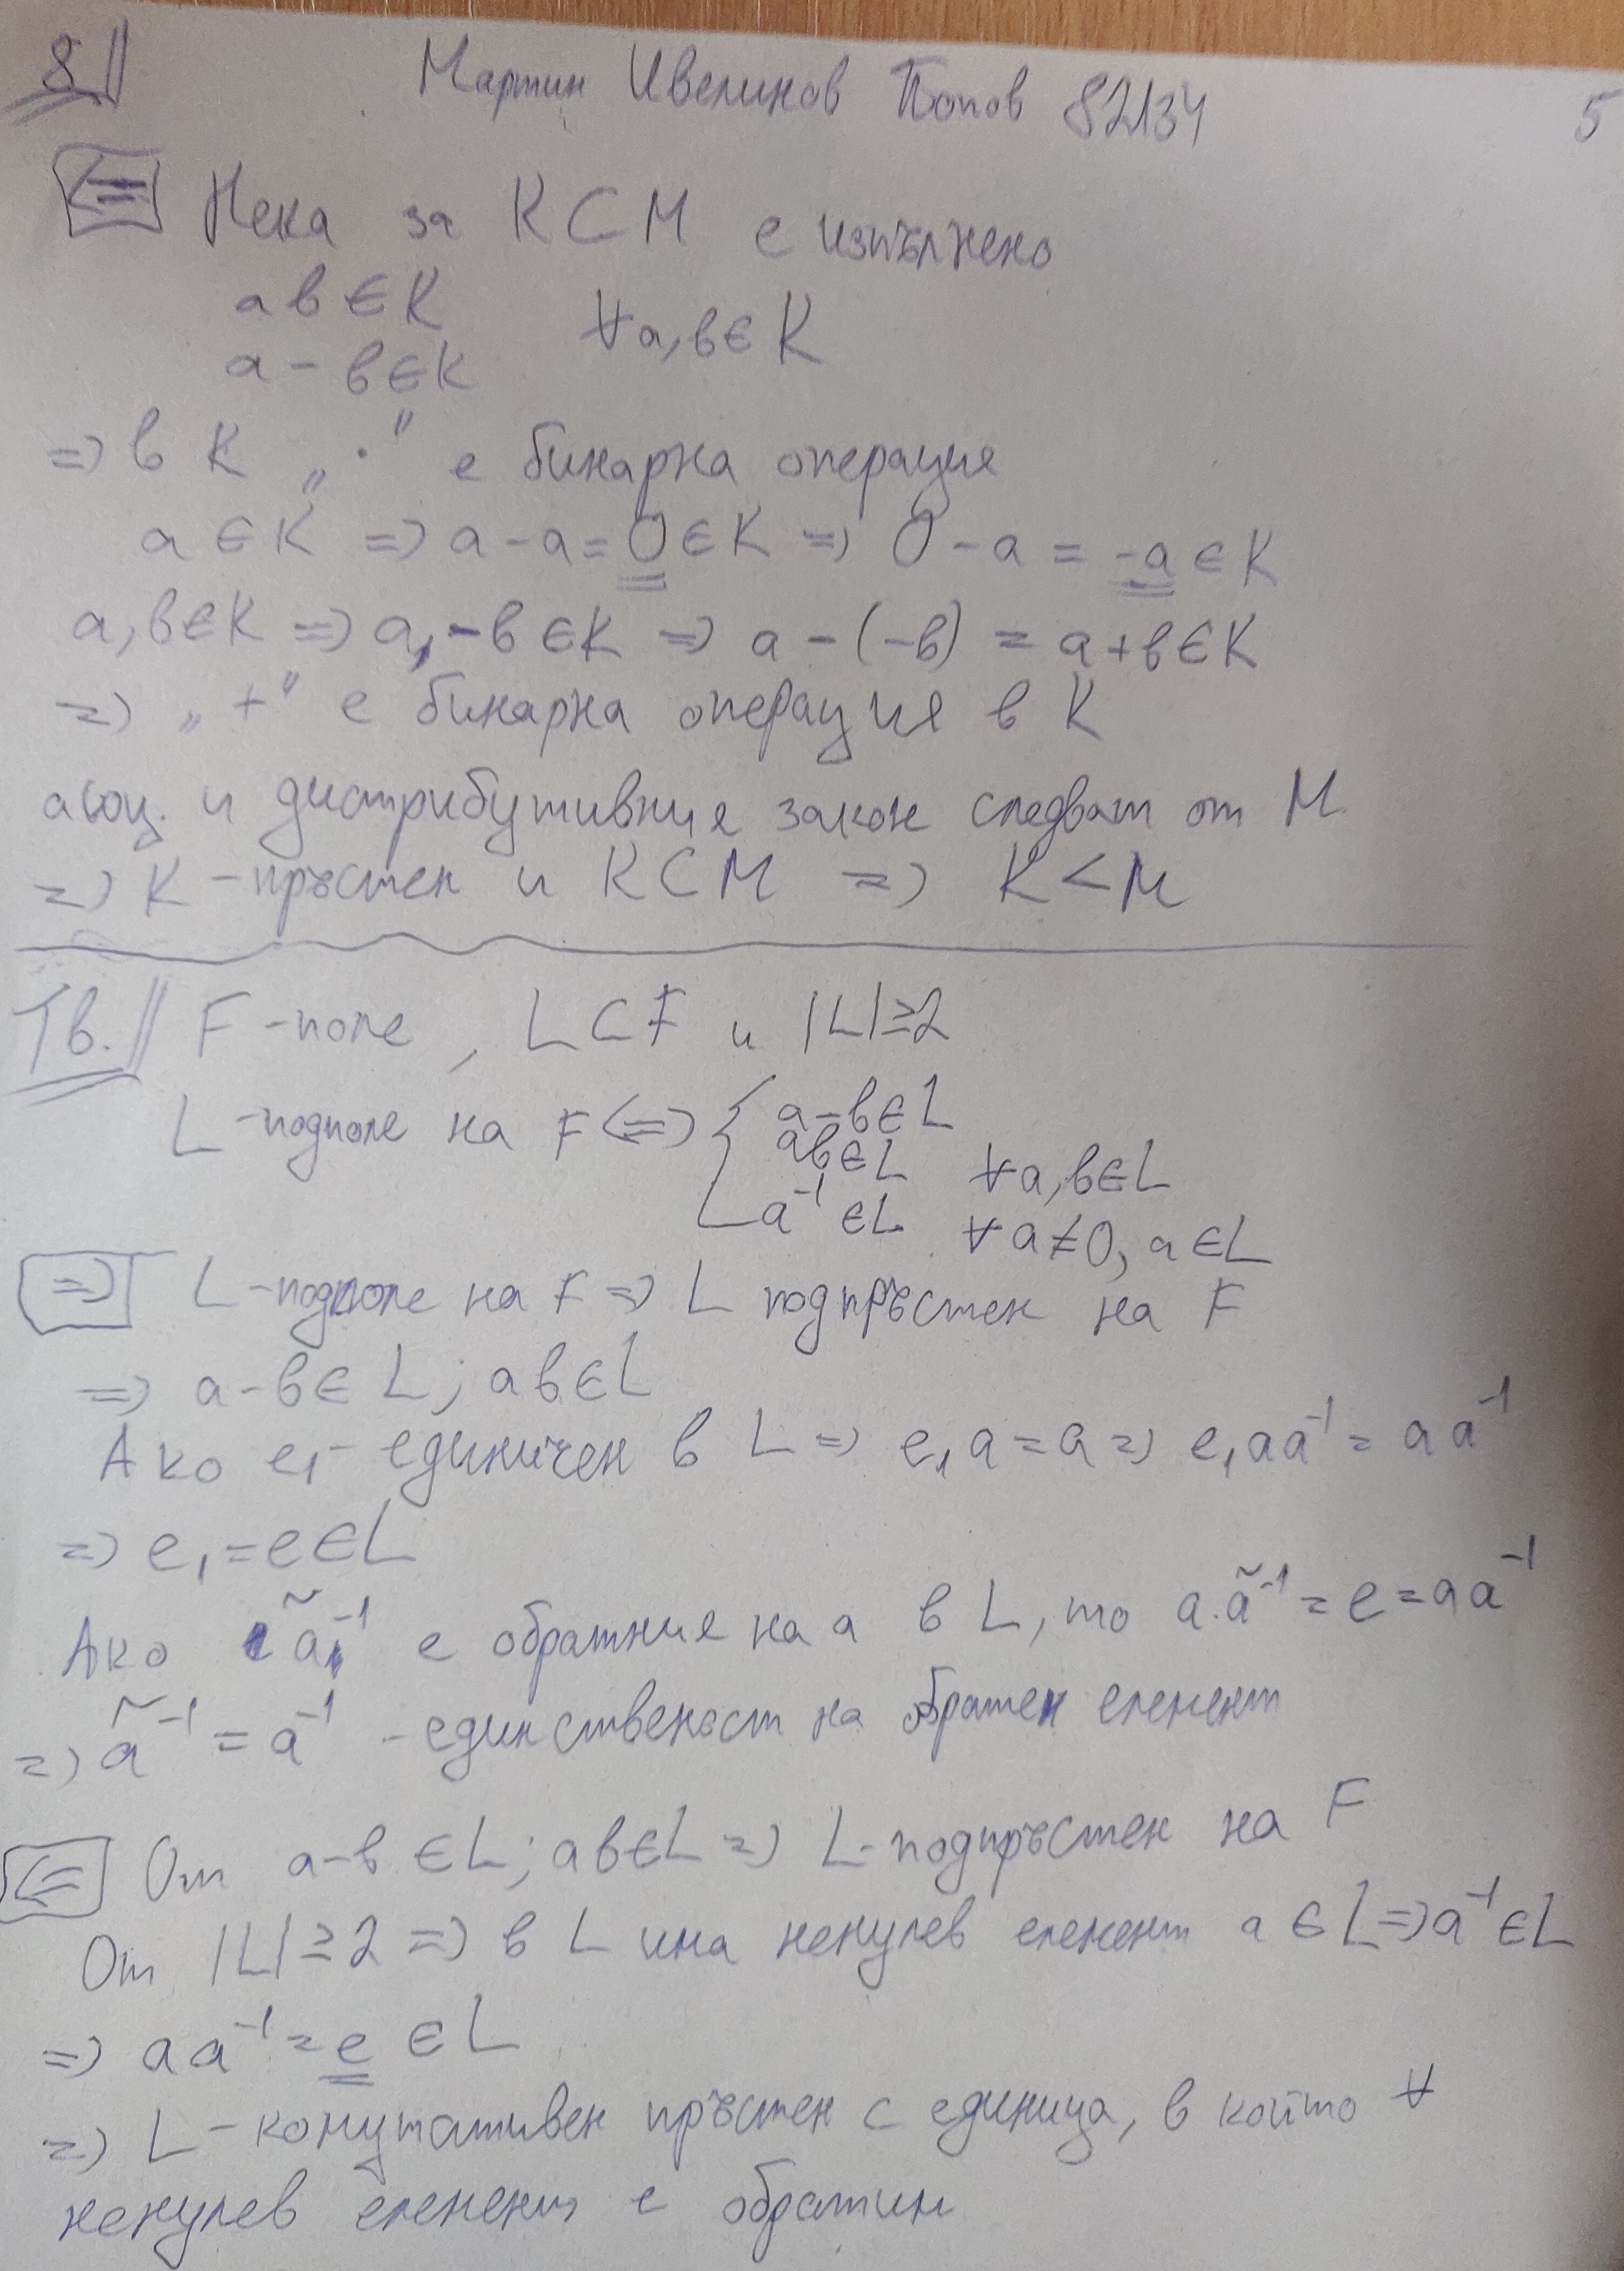 8.|| Мартин Ивелинов Попов 82134 5
<= Нека за K ⊂ M е изпълнено
ab ∈ K
a - b ∈ K ∀a, b ∈ K
=> в K „ · " е бинарна операция
a ∈ K => a - a = 0 ∈ K => 0 - a = -a ∈ K
a, b ∈ K => a, -b ∈ K => a - (-b) = a + b ∈ K
=> „ + " е бинарна операция в K
асоц. и дистрибутивния закон следват от M
=> K - пръстен и K ⊂ M => K < M
Тв.|| F - поле, L ⊂ F и |L| ≥ 2
L - подполе на F <=> { a - b ∈ L
ab ∈ L ∀a, b ∈ L
a⁻¹ ∈ L ∀a ≠ 0, a ∈ L
=> L - подполе на F => L подпръстен на F
=> a - b ∈ L; ab ∈ L
Ако e₁ - единичен в L => e₁a = a => e₁aa⁻¹ = aa⁻¹
=> e₁ = e ∈ L
Ако ã⁻¹ е обратния на a в L, то a.ã⁻¹ = e = aa⁻¹
=> ã⁻¹ = a⁻¹ - единственост на обратен елемент
<= От a - b ∈ L; ab ∈ L => L - подпръстен на F
От |L| ≥ 2 => в L има ненулев елемент a ∈ L => a⁻¹ ∈ L
=> aa⁻¹ = e ∈ L
=> L - комутативен пръстен с единица, в който ∀
ненулев елемент е обратим